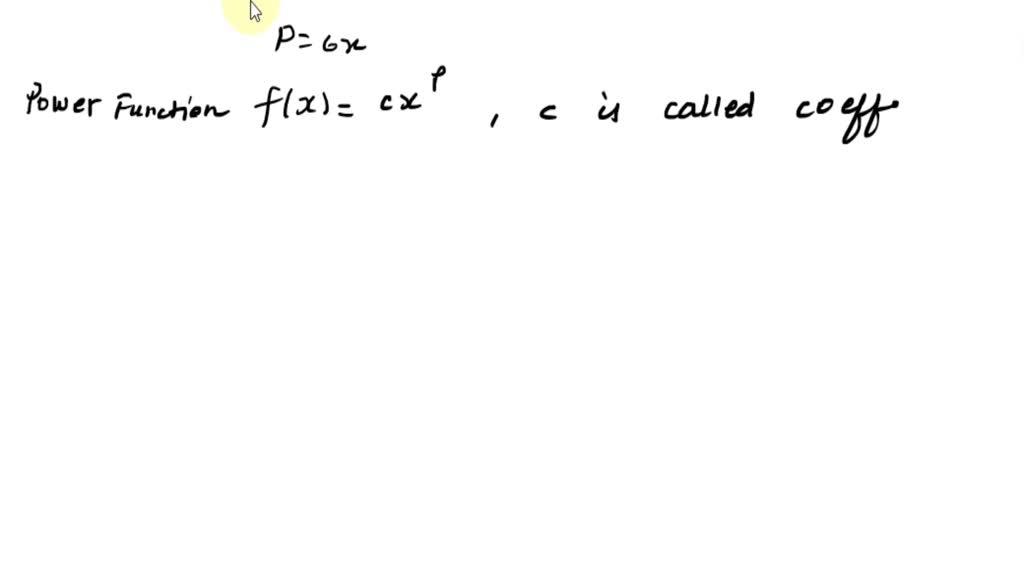 P = 6x
Power Function f(x) = cx^p , c is called coeff